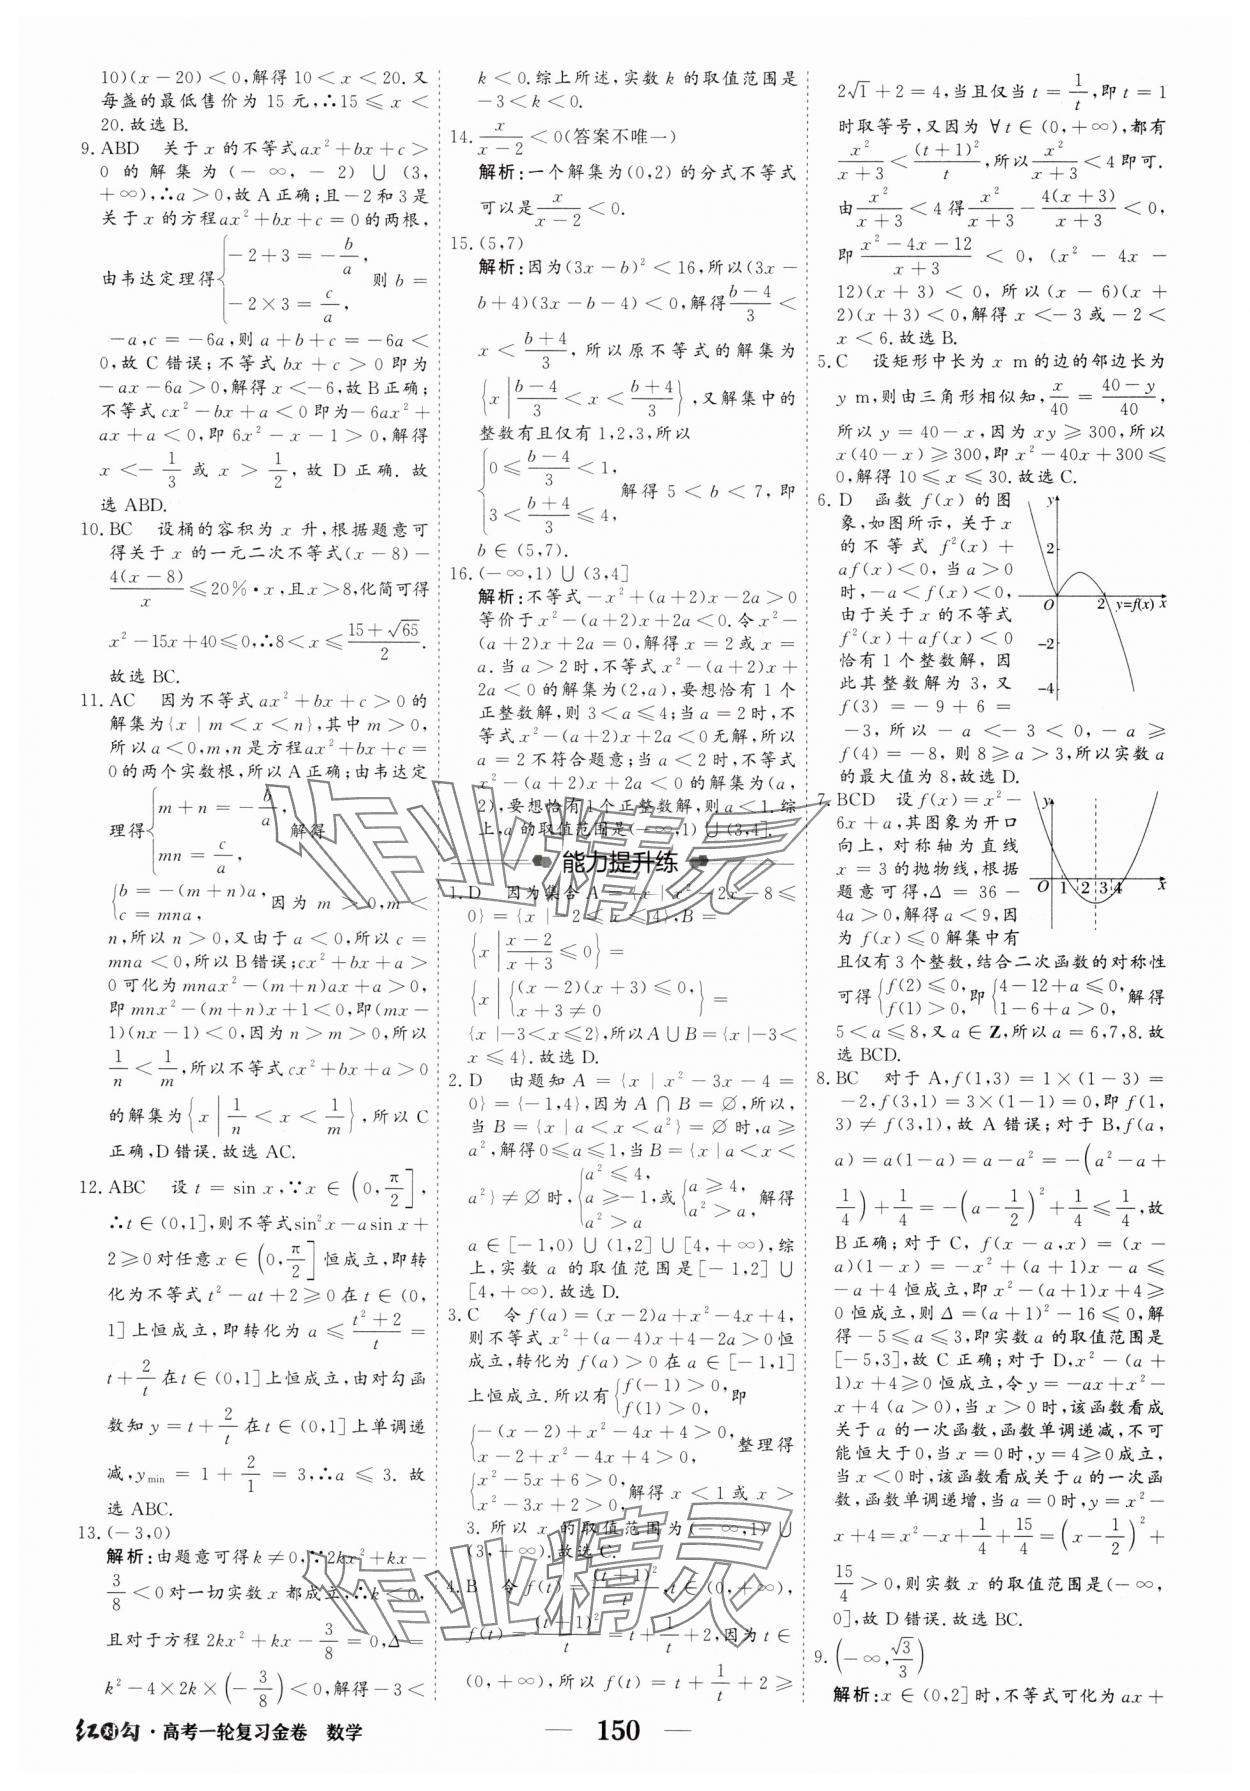 10)(x-20)<0,解得10<x<20.又
每盏的最低售价为15元,∴15≤x<
20.故选B.
9. ABD 关于x的不等式ax²+bx+c>
0的解集为(-∞,-2)∪(3,
+∞),∴a>0,故A正确;且-2和3是
关于x的方程ax²+bx+c=0的两根,
由韦达定理得{-2+3=-b/a, -2×3=c/a, 则b=
-a,c=-6a,则a+b+c=-6a<
0,故C错误;不等式bx+c>0即为
-ax-6a>0,解得x<-6,故B正确;
不等式cx²-bx+a<0即为-6ax²+
ax+a<0,即6x²-x-1>0,解得
x<-1/3或x>1/2,故D正确.故
选ABD.
10. BC 设桶的容积为x升,根据题意可
得关于x的一元二次不等式(x-8)-
4(x-8)/x≤20%·x,且x>8,化简可得
x²-15x+40≤0,∴8<x≤(15+√65)/2.
故选BC.
11. AC 因为不等式ax²+bx+c>0的
解集为{x|m<x<n},其中m>0,
所以a<0,m,n是方程ax²+bx+c=
0的两个实数根,所以A正确;由韦达定
理得{m+n=-b/a, mn=c/a, 解得
{b=-(m+n)a, c=mna, 因为m>0,m<
n,所以n>0,又由于a<0,所以c=
mna<0,所以B错误;cx²+bx+a>
0可化为mnax²-(m+n)ax+a>0,
即mnx²-(m+n)x+1<0,即(mx-
1)(nx-1)<0,因为n>m>0,所以
1/n<1/m,所以不等式cx²+bx+a>0
的解集为{x|1/n<x<1/m},所以C
正确,D错误.故选AC.
12. ABC 设t=sin x,∵x∈(0,π/2],
∴t∈(0,1],则不等式sin²x-asin x+
2≥0对任意x∈(0,π/2]恒成立,即转
化为不等式t²-at+2≥0在t∈(0,
1]上恒成立,即转化为a≤(t²+2)/t=
t+2/t在t∈(0,1]上恒成立,由对勾函
数知y=t+2/t在t∈(0,1]上单调递
减,ymin=1+2/1=3,∴a≤3.故
选ABC.
13. (-3,0)
解析:由题意可得k≠0,∵2kx²+kx-
3/8<0对一切实数x都成立,∴k<0,
且对于方程2kx²+kx-3/8=0,Δ=
k²-4×2k×(-3/8)<0,解得-3<
k<0.综上所述,实数k的取值范围是
-3<k<0.
14. x/(x-2)<0(答案不唯一)
解析:一个解集为(0,2)的分式不等式
可以是x/(x-2)<0.
15. (5,7)
解析:因为(3x-b)²<16,所以(3x-
b+4)(3x-b-4)<0,解得(b-4)/3<
x<(b+4)/3,所以原不等式的解集为
{x|(b-4)/3<x<(b+4)/3},又解集中的
整数有且仅有1,2,3,所以
{0≤(b-4)/3<1, 3<(b+4)/3≤4, 解得5<b<7,即
b∈(5,7).
16. (-∞,1)∪(3,4]
解析:不等式-x²+(a+2)x-2a>0
等价于x²-(a+2)x+2a<0.令x²-
(a+2)x+2a=0,解得x=2或x=
a.当a>2时,不等式x²-(a+2)x+
2a<0的解集为(2,a),要想恰有1个
正整数解,则3<a≤4;当a=2时,不
等式x²-(a+2)x+2a<0无解,所以
a=2不符合题意;当a<2时,不等式
x²-(a+2)x+2a<0的解集为(a,
2),要想恰有1个正整数解,则a<1.综
上,a的取值范围是(-∞,1)∪(3,4].
能力提升练
1. D 因为集合A={x|x²-2x-8≤
0}={x|-2≤x≤4},B=
{x|(x-2)/(x+3)≤0}=
{x|{(x-2)(x+3)≤0, x+3≠0}=
{x|-3<x≤2},所以A∪B={x|-3<
x≤4}.故选D.
2. D 由题知A={x|x²-3x-4=
0}={-1,4},因为A∩B=∅,所以,
当B={x|a<x<a²}=∅时,a≥
a²,解得0≤a≤1,当B={x|a<x<
a²}≠∅时,{a²≤4, a≥-1, a²>a 或{a≥4, a²>a, 解得
a∈[-1,0)∪(1,2]∪[4,+∞),综
上,实数a的取值范围是[-1,2]∪
[4,+∞).故选D.
3. C 令f(a)=(x-2)a+x²-4x+4,
则不等式x²+(a-4)x+4-2a>0恒
成立,转化为f(a)>0在a∈[-1,1]
上恒成立.所以有{f(-1)>0, f(1)>0, 即
{-(x-2)+x²-4x+4>0, x-2+x²-4x+4>0, 整理得
{x²-5x+6>0, x²-3x+2>0, 解得x<1或x>
3.所以x的取值范围为(-∞,1)∪
(3,+∞).故选C.
4. B 令f(t)=(t+1)²/t,t∈(0,+∞),
f(t)=(t+1)²/t=t+1/t+2,因为t∈
(0,+∞),所以f(t)=t+1/t+2≥
2√1+2=4,当且仅当t=1/t,即t=1
时取等号,又因为∀t∈(0,+∞),都有
x²/(x+3)<(t+1)²/t,所以x²/(x+3)<4即可.
由x²/(x+3)<4得x²/(x+3)-4(x+3)/(x+3)<0,
即(x²-4x-12)/(x+3)<0,(x²-4x-
12)(x+3)<0,所以(x-6)(x+
2)(x+3)<0,解得x<-3或-2<
x<6.故选B.
5. C 设矩形中长为x m的边的邻边长为
y m,则由三角形相似知,x/40=(40-y)/40,
所以y=40-x,因为xy≥300,所以
x(40-x)≥300,即x²-40x+300≤
0,解得10≤x≤30.故选C.
6. D 函数f(x)的图
象,如图所示,关于x
的不等式f²(x)+
af(x)<0,当a>0
时,-a<f(x)<0,
由于关于x的不等式
f²(x)+af(x)<0
恰有1个整数解,因
此其整数解为3,又
f(3)=-9+6=
-3,所以-a<-3<0,-a≥
f(4)=-8,则8≥a>3,所以实数a
的最大值为8,故选D.
y
2
O 2 y=f(x) x
-2
-4
7. BCD 设f(x)=x²-
6x+a,其图象为开口
向上,对称轴为直线
x=3的抛物线,根据
题意可得,Δ=36-
4a>0,解得a<9,因
为f(x)≤0解集中有
且仅有3个整数,结合二次函数的对称性
可得{f(2)≤0, f(1)>0, 即{4-12+a≤0, 1-6+a>0, 解得
5<a≤8,又a∈Z,所以a=6,7,8.故
选BCD.
y
O 1 2 3 4 x
8. BC 对于A,f(1,3)=1×(1-3)=
-2,f(3,1)=3×(1-1)=0,即f(1,
3)≠f(3,1),故A错误;对于B,f(a,
a)=a(1-a)=a-a²=-(a²-a+
1/4)+1/4=-(a-1/2)²+1/4≤1/4,故
B正确;对于C,f(x-a,x)=(x-
a)(1-x)=-x²+(a+1)x-a≤
-a+4恒成立,即x²-(a+1)x+4≥
0恒成立,则Δ=(a+1)²-16≤0,解
得-5≤a≤3,即实数a的取值范围是
[-5,3],故C正确;对于D,x²-(a+
1)x+4≥0恒成立,令y=-ax+x²-
x+4(a>0),当x>0时,该函数看成
关于a的一次函数,函数单调递减,不可
能恒大于0,当x=0时,y=4≥0成立,
当x<0时,该函数看成关于a的一次函
数,函数单调递增,当a=0时,y=x²-
x+4=x²-x+1/4+15/4=(x-1/2)²+
15/4>0,则实数x的取值范围是(-∞,
0],故D错误.故选BC.
9. (-∞,√3/3)
解析:x∈(0,2]时,不等式可化为ax+
红对勾·高考一轮复习金卷 数学
150
作业精灵
作业精灵